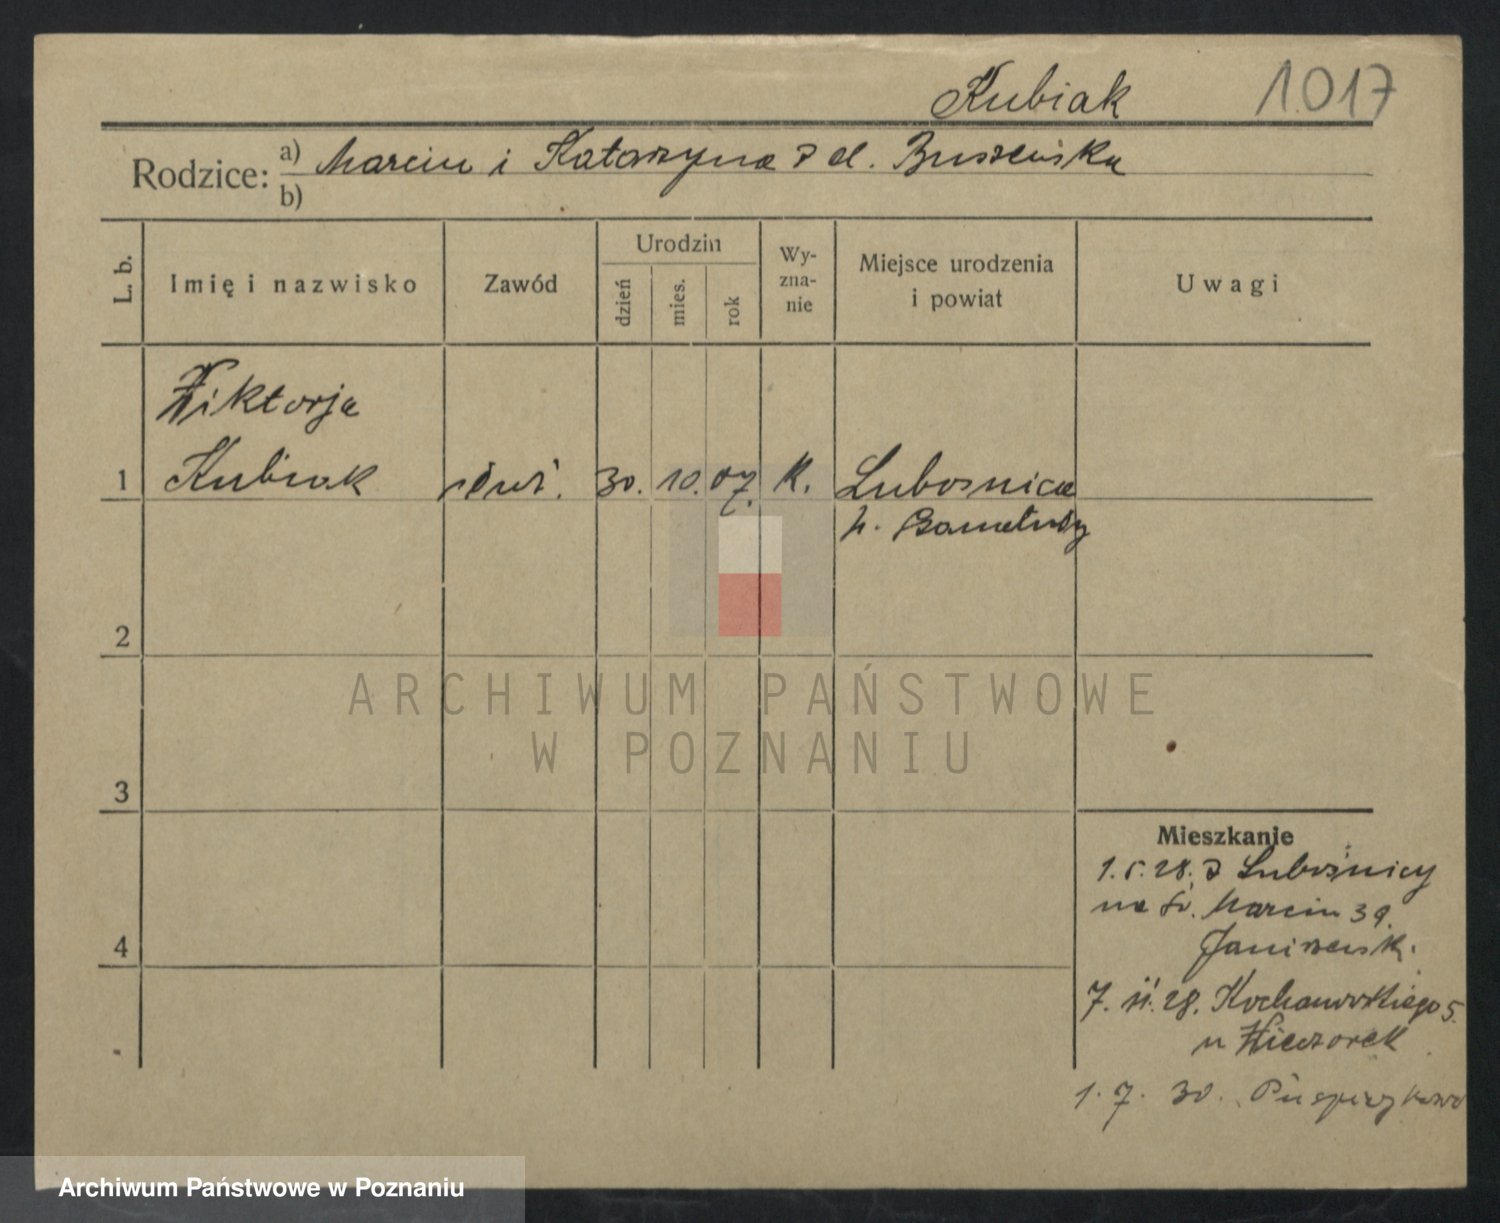 Kubiak 1017
Rodzice: a) Marcin i Katarzyna z d.
b)
L. b.
Imię i nazwisko
Zawód
Urodzin
dzień
mies.
rok
Wy-
zna-
nie
Miejsce urodzenia
i powiat
Uwagi
Wiktorja
1 Kubiak służ. 30. 10. 07. K. Lubosnica
p.
2
3
4
ARCHIWUM PAŃSTWOWE
W POZNANIU
Mieszkanie
1.5.28. z Lubośnicy
na św. Marcin 39.
7. 11. 28. Kochanowskiego 5.
u Wieczorek
1. 7. 30.
Archiwum Państwowe w Poznaniu